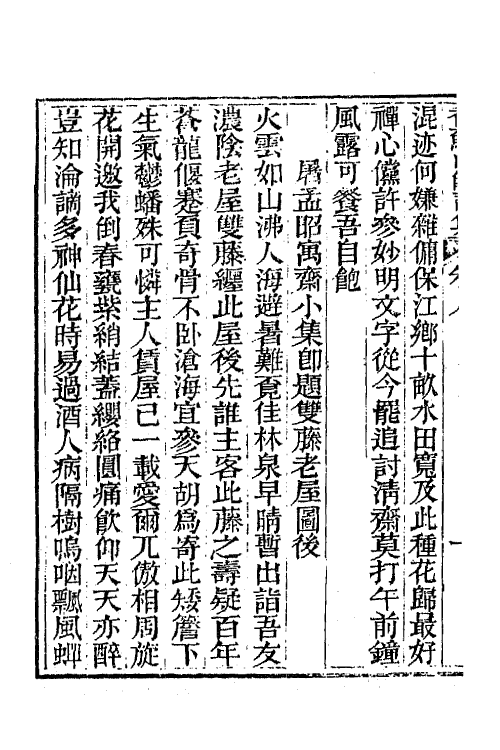 混迹何嫌雜傭保江鄉十畝水田寬及此種花歸最好
禪心儻許參妙明文字從今罷追討淸齋莫打午前鐘
風露可餐吾自飽
屠孟昭寓齋小集卽題雙藤老屋圖後
火雲如山沸人海避暑難覓佳林泉早晴暫出詣吾友
濃陰老屋雙藤纏此屋後先誰主客此藤之壽疑百年
蒼龍偃蹇負奇骨不卧滄海宜參天胡爲寄此矮簷下
生氣鬱蟠殊可憐主人賃屋已一載愛爾兀傲相周旋
花開邀我倒春甕紫綃結蓋纓絡圓痛飮仰天天亦醉
豈知淪謫多神仙花時易過酒人病隔樹嗚咽飄風蟬
一